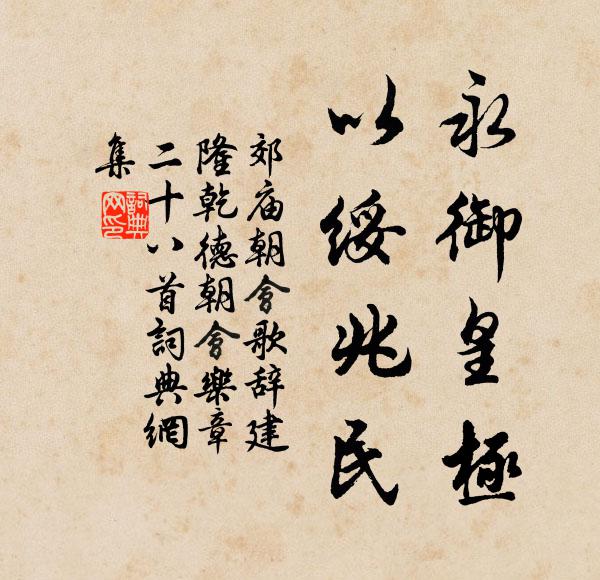 永御皇極
以綏兆民
郊庙朝會歌辞建
隆乾德朝會樂章
二十八首詞典網
集
詞典
网印